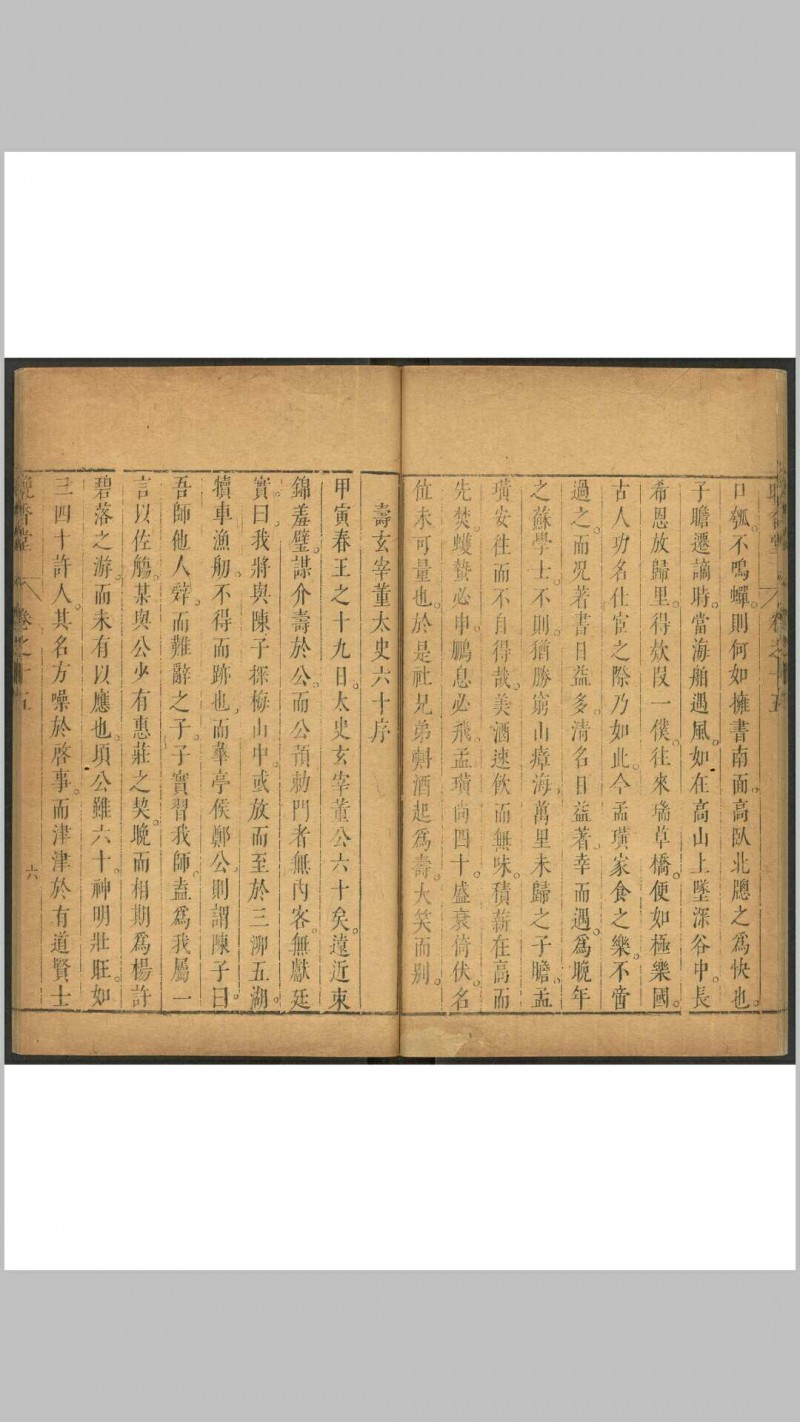 口瓠不鳴蟬則何如擁書南面高臥北牕之爲快也
子瞻遷謫時當海舶遇風如在高山上墜深谷中長
希恩放歸里得欸段一僕往來瑞草橋便如極樂國
古人功名仕宦之際乃如此今孟璜家食之樂不啻
過之而況著書日益多清名日益著幸而遇爲晚年
之蘇學士不則猶勝窮山瘴海萬里未歸之子瞻孟
璜安往而不自得哉美酒速飲而無味積薪在高而
先焚蠖蟄必申鵬息必飛孟璜尚四十盛衰倚伏名
位未可量也於是社兄弟斟酒起爲壽大笑而別
壽玄宰董太史六十序
甲寅春王之十九日太史玄宰董公六十矣遠近束
錦羞璧謀介壽於公而公預勅門者無內客無獻廷
實曰我將與陳子探梅山中或放而至於三泖五湖
犢車漁舠不得而跡也而華亭侯鄭公則謂陳子曰
吾師他人辭而難辭之子子實習我師盍爲我屬一
言以佐觴某與公少有惠莊之契晚而相期爲楊許
碧落之游而未有以應也頃公雖六十神明壯旺如
三四十許人其名方噪於啓事而津津於有道賢士
晚香堂
卷之十五
六